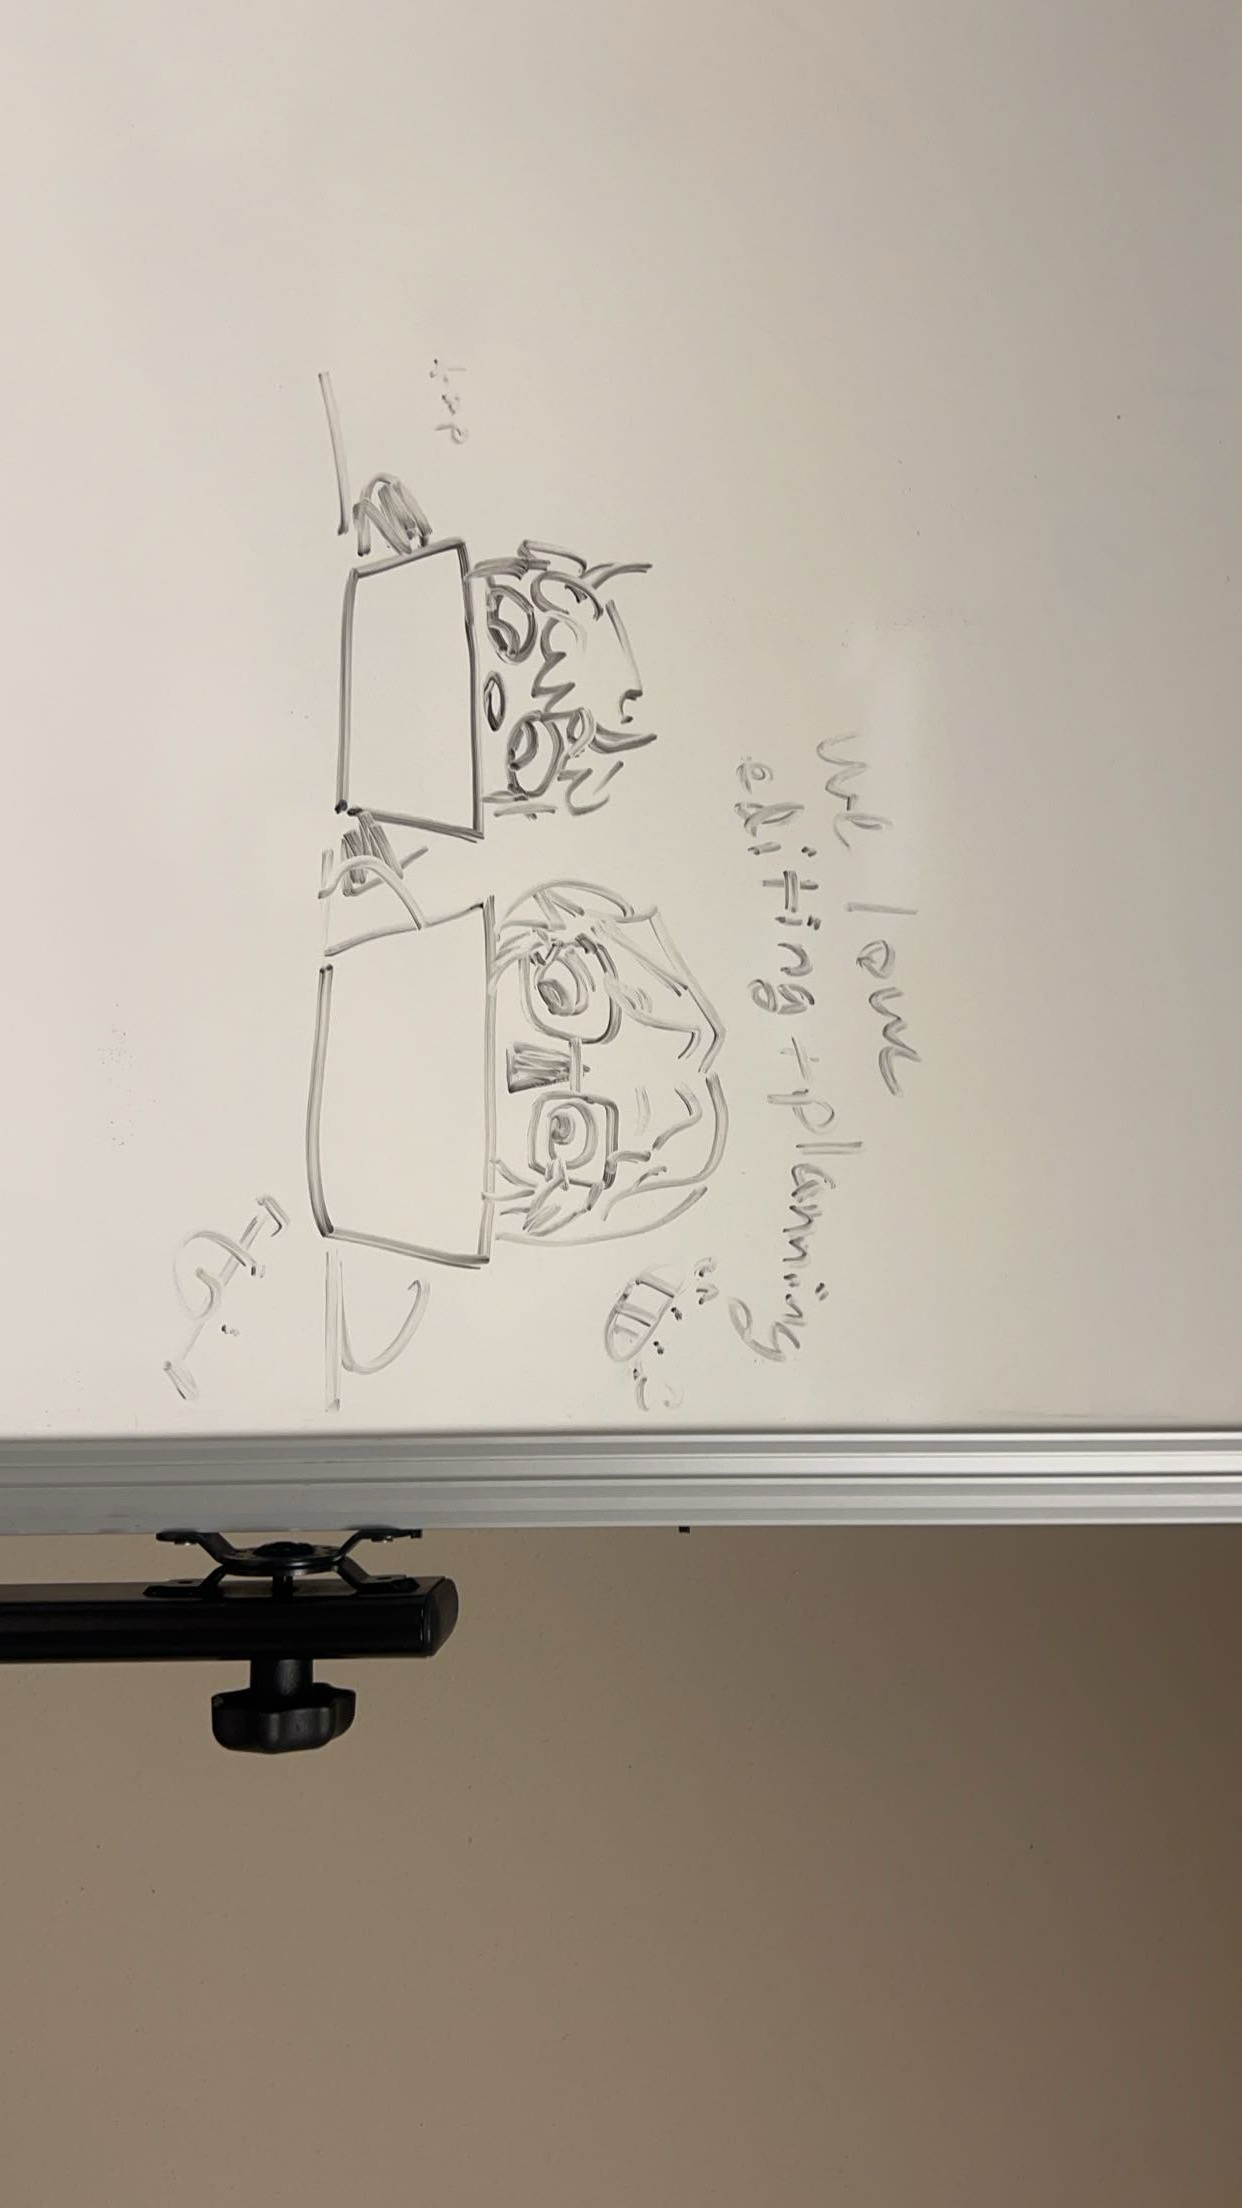 we love
editing + planning
tap